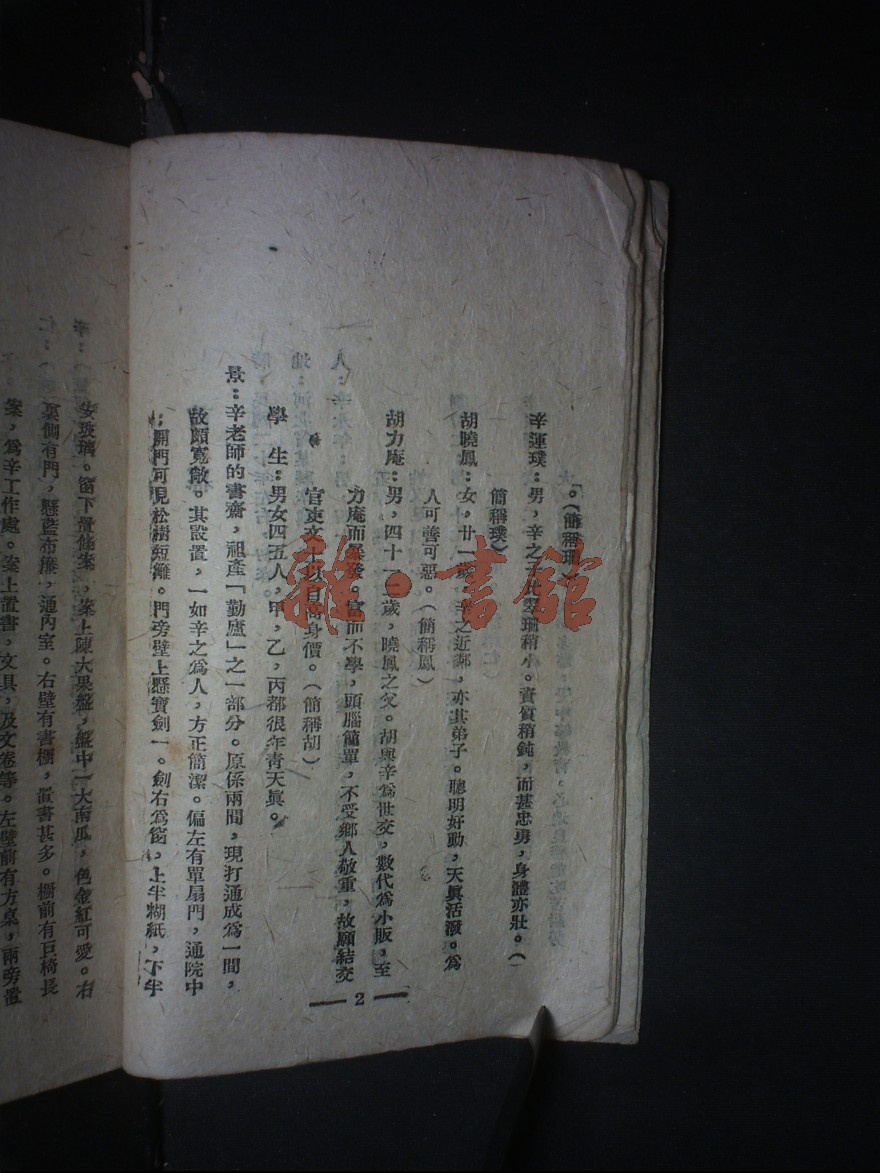 。(簡稱珊)
辛運璞:男,辛之子比雲珊稍小。資質稍鈍,而甚忠勇,身體亦壯。(
簡稱璞)
胡曉鳳:女,廿一歲,辛之近鄰,亦其弟子。聰明好動,天眞活潑。爲
人可善可惡。(簡稱鳳)
胡力庵:男,四十一二歲,曉鳳之父。胡與辛爲世交,數代爲小販,至
力庵而暴發。富而不學,頭腦簡單,不受鄉人敬重,故願結交
官吏文士以自高身價。(簡稱胡)
學 生:男女四五人,甲,乙,丙都很年青天眞。
景:辛老師的書齋,祖產「勤廬」之一部分。原係兩間,現打通成爲一間,
故頗寬敞。其設置,一如辛之爲人,方正簡潔。偏左有單扇門,通院中
:開門可見松樹短籬。門旁壁上懸寶劍一。劍右爲窗,上半糊紙,下半
安玻璃。窗下置條案,案上陳大果盤,盤中一大南瓜,色金紅可愛。右
裏側有門,懸藍布簾,通內室。右壁有書櫥,置書甚多。櫥前有巨椅長
案,爲辛工作處。案上置書,文具,及文卷等。左壁前有方桌,兩旁置
2
雜·書館